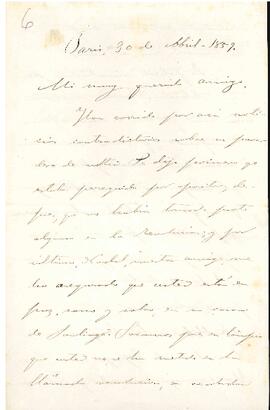 6
Paris, 30 de Abril - 1859.
Mi muy querido amigo.
Han corrido por acá noti
cias contradictorias sobre su para
dero de usted. Se dijo primero que
estaba perseguido por opositor, des
pues, que no habia tomado parte
alguna en la Revolucion; y por
ultimo, nuestro amigo, me
ha asegurado que usted está en
paz, sano y salvo, en su casa
de Santiago. Sabemos que en tiempo
que usted no se ha metido en la
llamada revolucion,